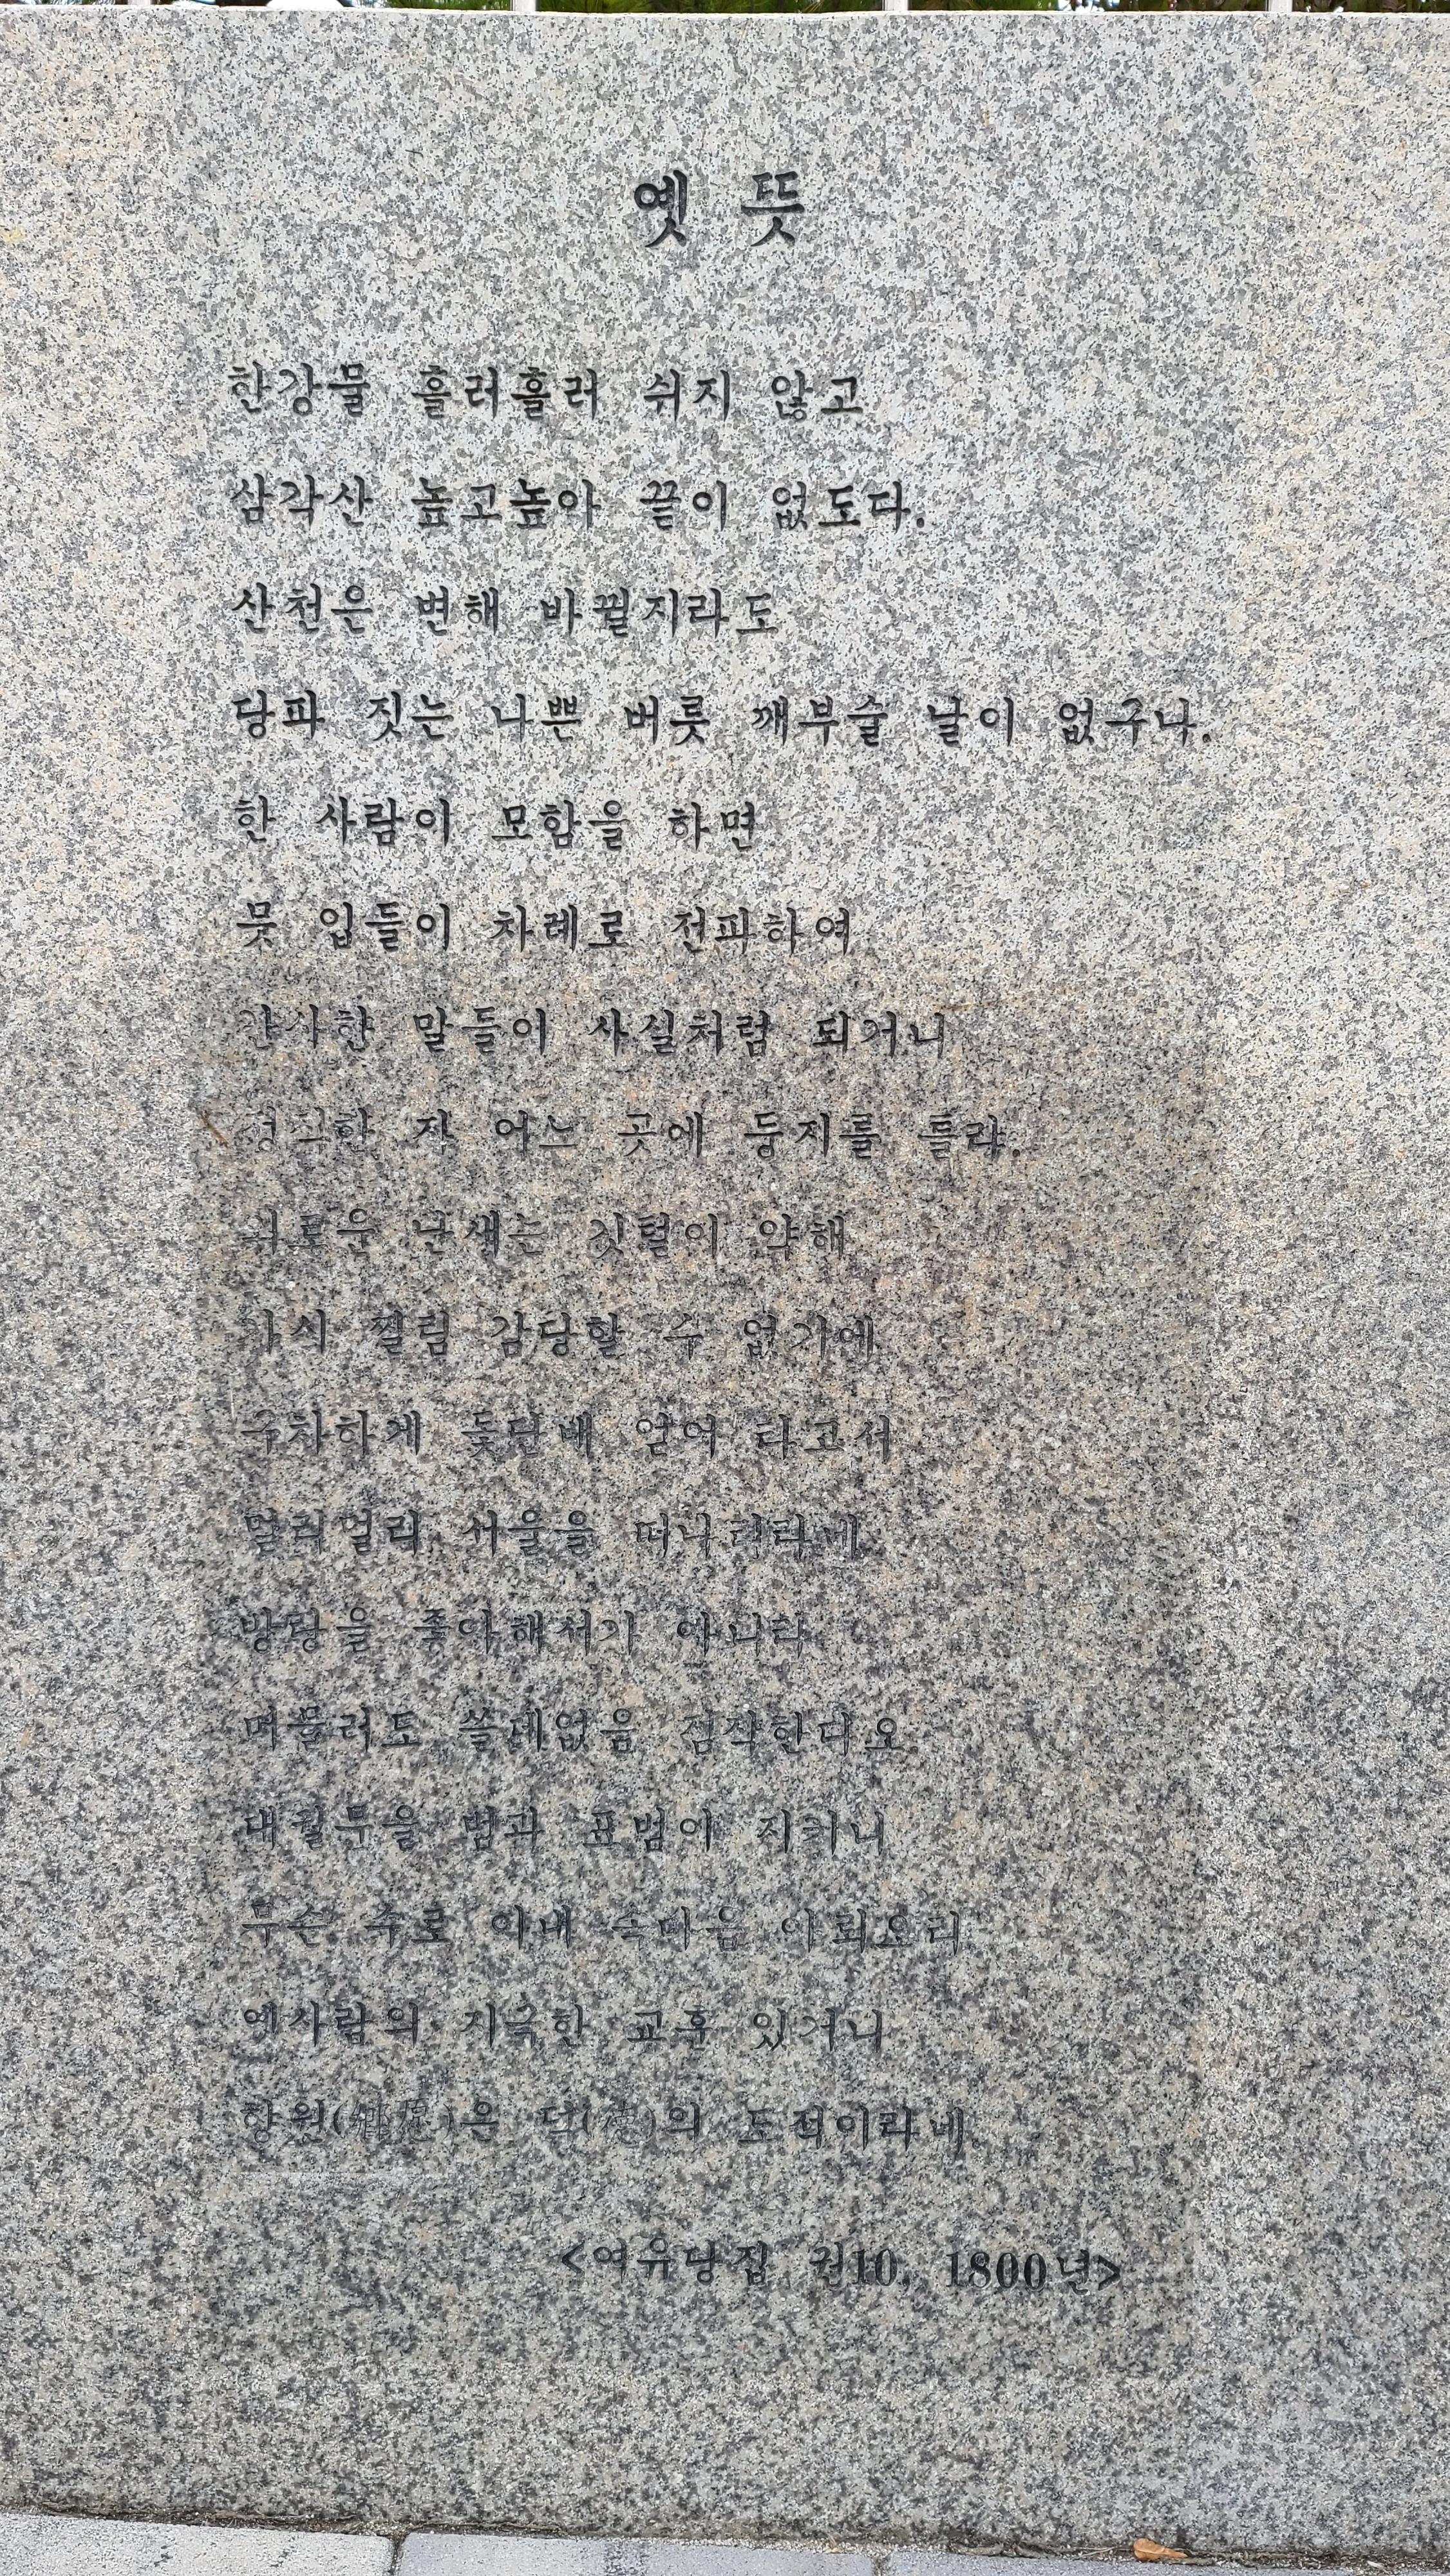 옛 뜻
한강물 흘러흘러 쉬지 않고
삼각산 높고높아 끝이 없도다.
산천은 변해 바뀔지라도
당파 짓는 나쁜 버릇 깨부술 날이 없구나.
한 사람이 모함을 하면
뭇 입들이 차례로 전파하여
간사한 말들이 사실처럼 되거니
정직한 자 어느 곳에 둥지를 틀랴.
외로운 난새는 깃털이 약해
가시 찔림 감당할 수 없기에
구차하게 돛단배 얻어 타고서
멀리멀리 서울을 떠나리라네.
방랑을 좋아해서가 아니라
머물러도 쓸데없음 짐작한다오.
대궐문을 범과 표범이 지키니
무슨 수로 이내 속마음 아뢰오리
옛사람의 지극한 교훈 있거니
향원(鄕愿)은 덕(德)의 도적이라네.
<여유당집 권10, 1800년>